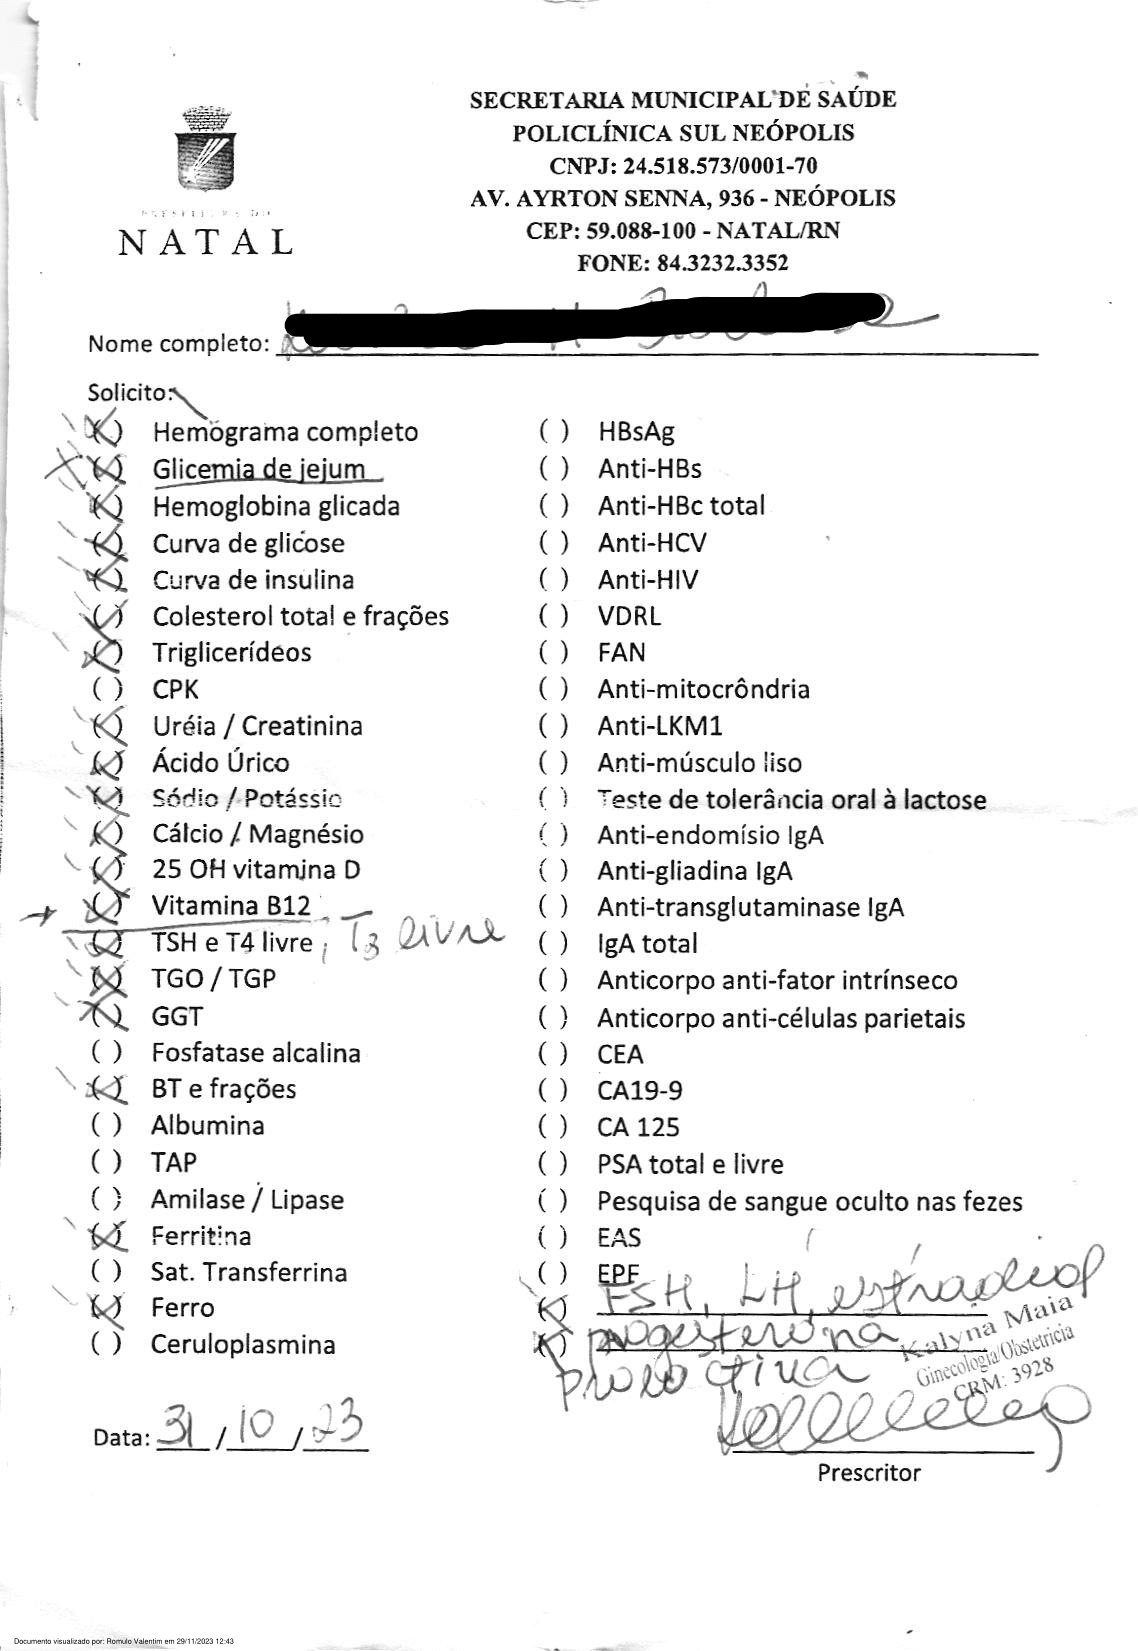 SECRETARIA MUNICIPAL DE SAÚDE
POLICLÍNICA SUL NEÓPOLIS
CNPJ: 24.518.573/0001-70
AV. AYRTON SENNA, 936 - NEÓPOLIS
CEP: 59.088-100 - NATAL/RN
FONE: 84.3232.3352
PREFEITURA DO
NATAL
Nome completo:
Solicito:
(X) Hemograma completo
(X) Glicemia de jejum
(X) Hemoglobina glicada
(X) Curva de glicose
(X) Curva de insulina
(X) Colesterol total e frações
(X) Triglicerídeos
( ) CPK
(X) Uréia / Creatinina
(X) Ácido Úrico
(X) Sódio / Potássio
(X) Cálcio / Magnésio
(X) 25 OH vitamina D
(X) Vitamina B12
(X) TSH e T4 livre, T3 livre
(X) TGO / TGP
(X) GGT
( ) Fosfatase alcalina
(X) BT e frações
( ) Albumina
( ) TAP
( ) Amilase / Lipase
(X) Ferritina
( ) Sat. Transferrina
(X) Ferro
( ) Ceruloplasmina
( ) HBsAg
( ) Anti-HBs
( ) Anti-HBc total
( ) Anti-HCV
( ) Anti-HIV
( ) VDRL
( ) FAN
( ) Anti-mitocrôndria
( ) Anti-LKM1
( ) Anti-músculo liso
( ) Teste de tolerância oral à lactose
( ) Anti-endomísio IgA
( ) Anti-gliadina IgA
( ) Anti-transglutaminase IgA
( ) IgA total
( ) Anticorpo anti-fator intrínseco
( ) Anticorpo anti-células parietais
( ) CEA
( ) CA19-9
( ) CA 125
( ) PSA total e livre
( ) Pesquisa de sangue oculto nas fezes
( ) EAS
( ) EPF
(X) FSH, LH, estradiol
(X) progesterona
prolactina
Kalyna Maia
Ginecologia/Obstetrícia
CRM: 3928
Data: 31/10/23
Prescritor
Documento visualizado por: Romulo Valentim em 29/11/2023 12:43